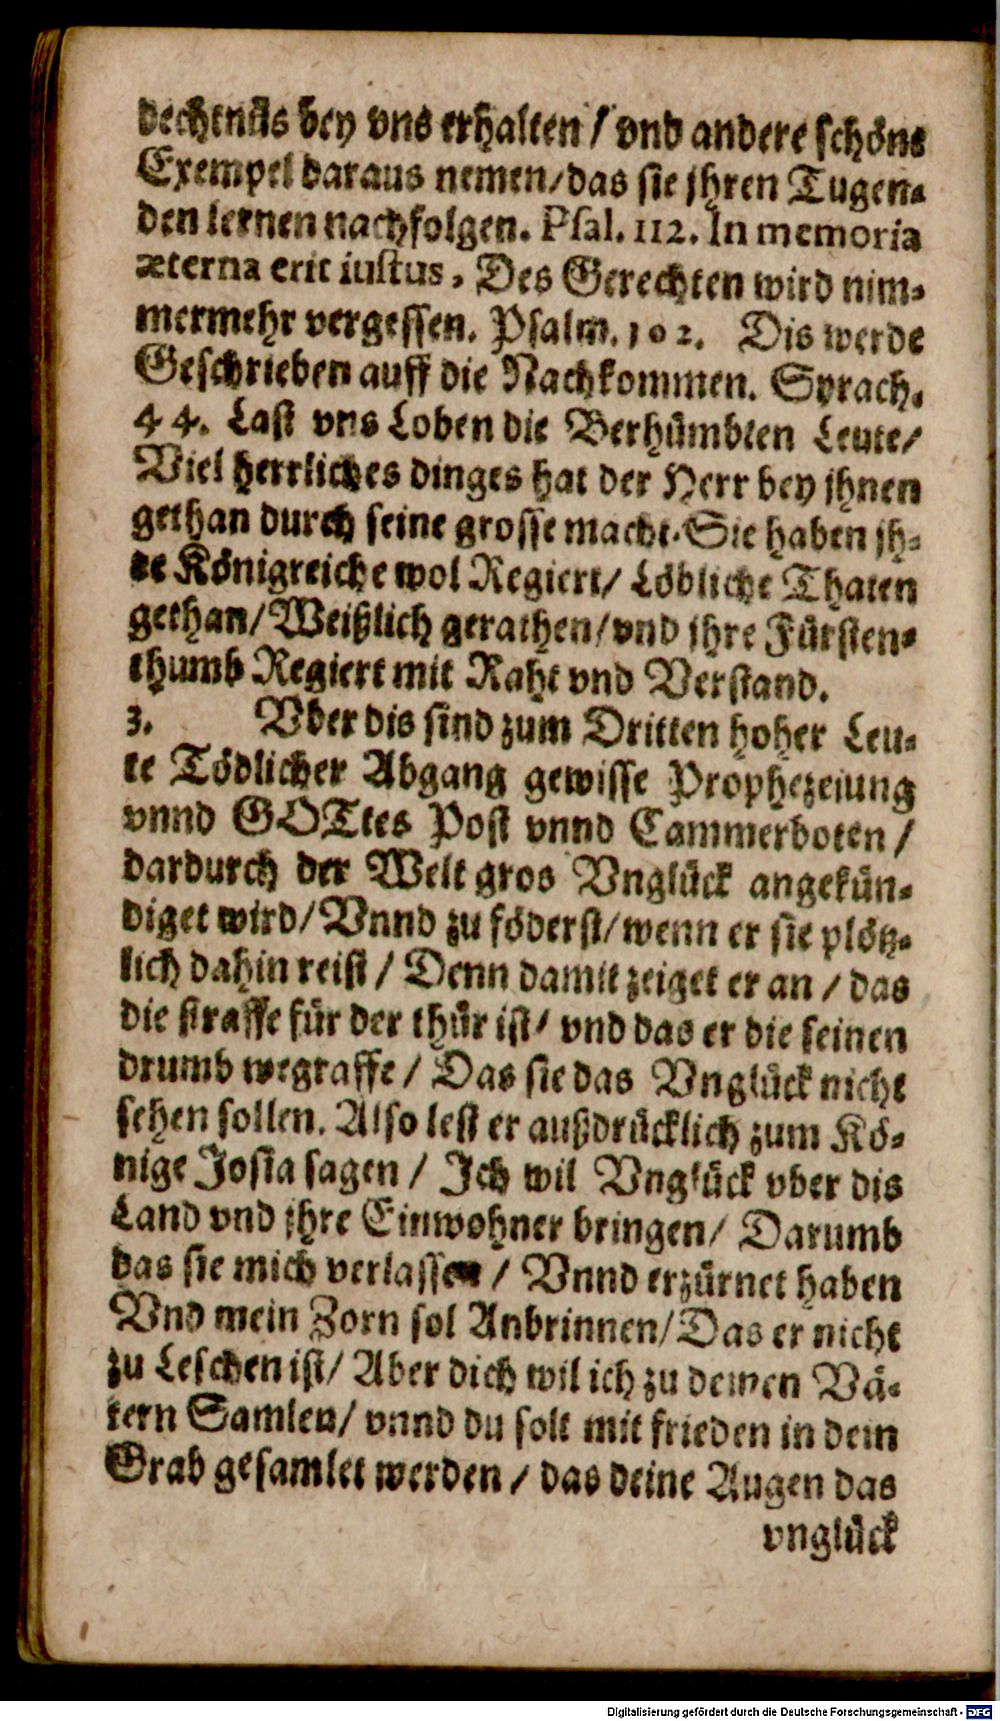 dechtnüs bey vns erhalten / vnd andere schöne
Exempel daraus nemen/das sie jhren Tugen-
den lernen nachfolgen. Psal. 112. In memoria
æterna erit iustus, Des Gerechten wird nim-
mermehr vergessen. Psalm. 102. Dis werde
Geschrieben auff die Nachkommen. Syrach.
44. Last vns Loben die Berhümbten Leute/
Viel herrliches dinges hat der Herr bey jhnen
gethan durch seine grosse macht. Sie haben jh-
re Königreiche wol Regiert/ Löbliche Thaten
gethan/Weißlich gerathen/vnd jhre Fürsten-
thumb Regiert mit Raht vnd Verstand.
3. Vber dis sind zum Dritten hoher Leu-
te Tödlicher Abgang gewisse Prophezeiung
vnnd GOTtes Post vnnd Cammerboten /
dardurch der Welt gros Vnglück angekün-
diget wird/Vnnd zu föderst/wenn er sie plötz-
lich dahin reist / Denn damit zeiget er an / das
die straffe für der thür ist/ vnd das er die seinen
drumb wegraffe / Das sie das Vnglück nicht
sehen sollen. Also lest er außdrücklich zum Kö-
nige Josia sagen / Ich wil Vnglück vber dis
Land vnd jhre Einwohner bringen/ Darumb
das sie mich verlassen / Vnnd erzürnet haben
Vnd mein Zorn sol Anbrinnen/Das er nicht
zu Leschen ist/ Aber dich wil ich zu deinen Vä-
tern Samlen/ vnnd du solt mit frieden in dein
Grab gesamlet werden / das deine Augen das
vnglück
Digitalisierung gefördert durch die Deutsche Forschungsgemeinschaft - DFG